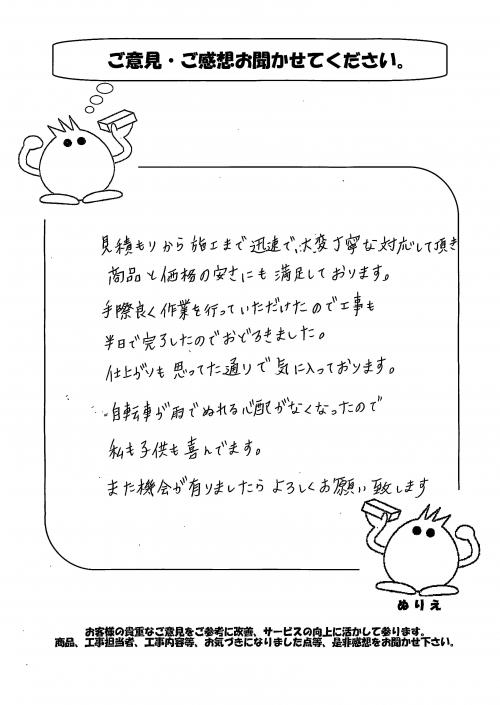 ご意見・ご感想お聞かせてください。
見積もりから施工まで迅速で、大変丁寧な対応して頂き
商品と価格の安さにも満足しております。
手際良く作業を行っていただけたので工事も
半日で完了したのでおどろきました。
仕上がりも思ってた通りで気に入っております。
自転車が雨でぬれる心配がなくなったので
私も子供も喜んでます。
また機会が有りましたらよろしくお願い致します
ぬりえ
お客様の貴重なご意見をご参考に改善、サービスの向上に活かして参ります。
商品、工事担当者、工事内容等、お気づきになりました点等、是非感想をお聞かせ下さい。